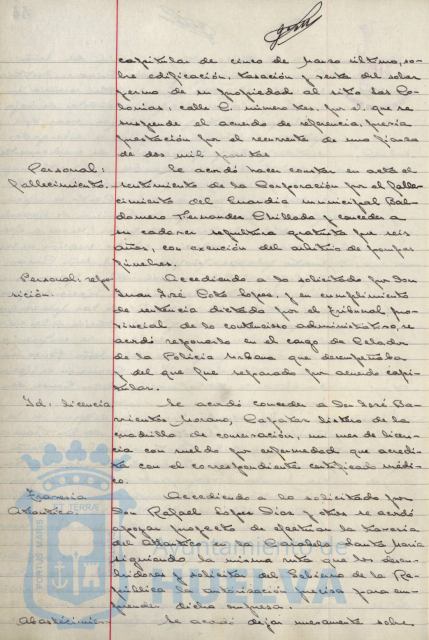 capitular de cinco de marzo último, so-
bre edificación, tasación y venta del solar
yermo de su propiedad al sitio Las Co-
lonias, calle C. número tres, por el que se
suspende el acuerdo de referencia, previa
prestación por el recurrente de una fianza
de dos mil pesetas
Personal: Se acordó hacer constar en acta el
fallecimiento. sentimiento de la Corporación por el falle-
cimiento del Guardia municipal Bal-
domero Fernandez Chillada y conceder a
su cadaver sepultura gratuita por seis
años, con exención del arbitrio de pompas
fúnebres.
Personal: repo- Accediendo a lo solicitado por Don
sición. Juan José Lopez, y en cumplimiento
de sentencia dictada por el tribunal pro-
vincial de lo contencioso administrativo, se
acordó reponerlo en el cargo de Celador
de la Policia Urbana que desempeñaba
y del que fue separado por acuerdo capi-
tular.
Id: licencia Se acordó conceder a Don José Ba-
rrientos Morano, Capataz listero de la
cuadrilla de conservación, un mes de licen-
cia con sueldo por enfermedad que acredi-
ta con el correspondiente certificado médi-
co.
Travesia Accediendo a lo solicitado por
Atlantico. Don Rafael Lopez Dias y otros se acordó
apoyar proyecto de efectuar la travesia
del Atlantico en la Carabela Santa Maria
siguiendo la misma ruta que los descu-
bridores y solicitar del Gobierno de la Re-
pública la autorización precisa para em-
prender dicha empresa.
Abastecimien- Se acordó dejar nuevamente sobre
PORTUS MARIS TERRAE
Ayuntamiento de
HUELVA